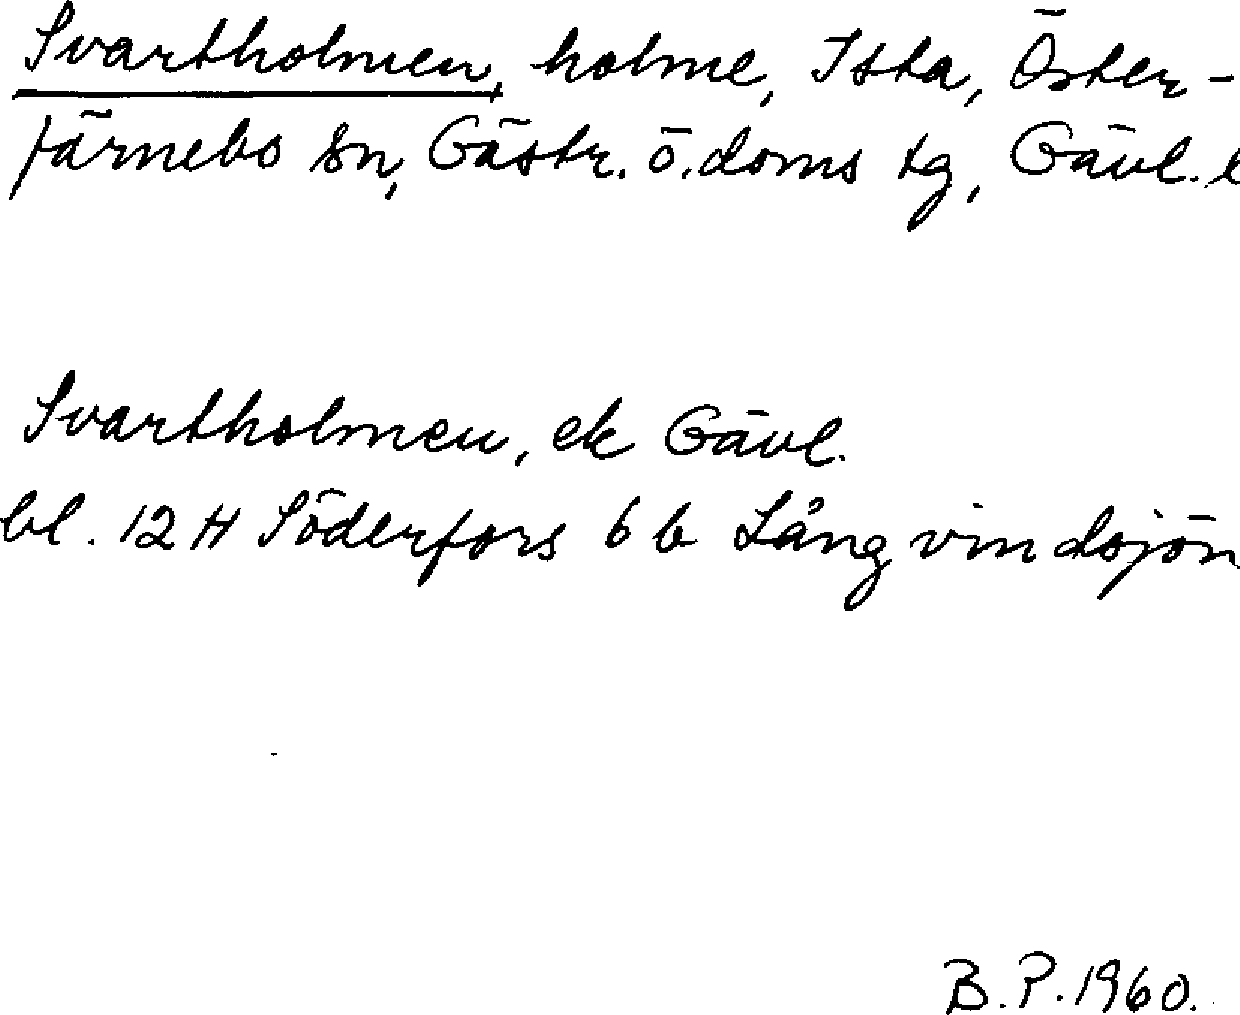 Svartholmen, holme, Ista, Öster-
färnebo sn, Gästr. ö. doms tg, Gävl. l
Svartholmen, ek Gävl.
bl. 12 H Söderfors 6 b Långvindsjön
B.P. 1960.